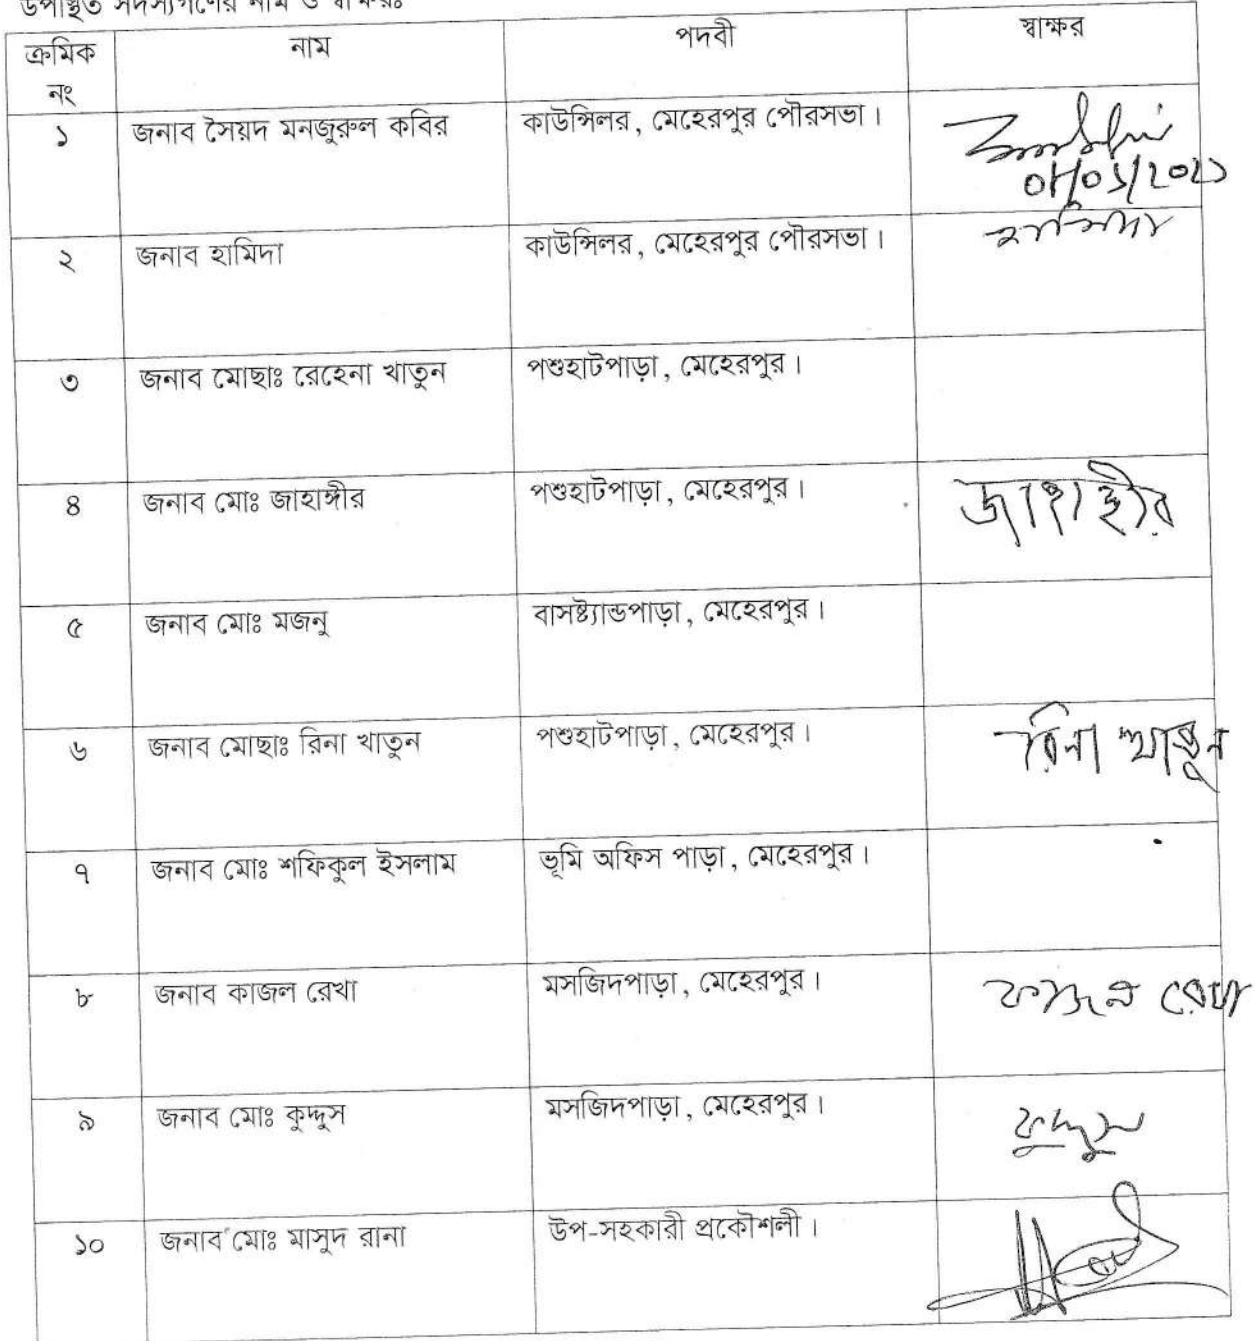 উপস্থিত সদস্যগণের নাম ও স্বাক্ষরঃ
ক্রমিক নং নাম পদবী স্বাক্ষর
১ জনাব সৈয়দ মনজুরুল কবির কাউন্সিলর, মেহেরপুর পৌরসভা।
২ জনাব হামিদা কাউন্সিলর, মেহেরপুর পৌরসভা। হামিদা
৩ জনাব মোছাঃ রেহেনা খাতুন পশুহাটপাড়া, মেহেরপুর।
৪ জনাব মোঃ জাহাঙ্গীর পশুহাটপাড়া, মেহেরপুর। জাহাঙ্গীর
৫ জনাব মোঃ মজনু বাসষ্ট্যান্ডপাড়া, মেহেরপুর।
৬ জনাব মোছাঃ রিনা খাতুন পশুহাটপাড়া, মেহেরপুর। রিনা খাতুন
৭ জনাব মোঃ শফিকুল ইসলাম ভূমি অফিস পাড়া, মেহেরপুর।
৮ জনাব কাজল রেখা মসজিদপাড়া, মেহেরপুর। কাজল রেখা
৯ জনাব মোঃ কুদ্দুস মসজিদপাড়া, মেহেরপুর। কুদ্দুস
১০ জনাব মোঃ মাসুদ রানা উপ-সহকারী প্রকৌশলী।